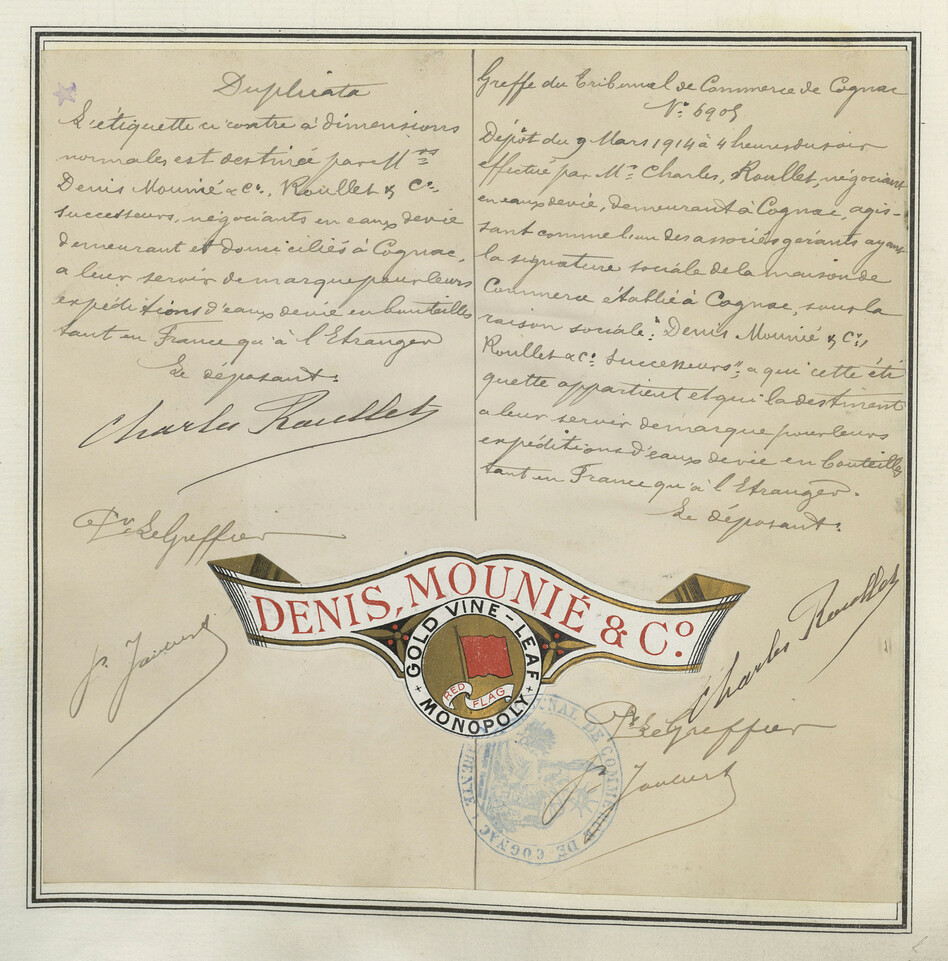 Duplicata
L'étiquette ci contre à dimensions
normales est destinée par M.rs
Denis Mounié & Co., Roullet & Co.
successeurs, négociants en eaux devie
demeurant et domiciliés à Cognac,
a leur servir de marque pour leurs
expéditions d'eaux devie en bouteilles
tant en France qu'à l'Etranger
Le déposant:
Charles Roullet
Pr. Le Greffier
Greffe du Tribunal de Commerce de Cognac
No. 6905
Dépôt du 9 Mars 1914 à 4 heures du soir
effectué par Mr. Charles, Roullet, négociant
en eaux devie, demeurant à Cognac, agis-
sant comme l'un des associés gérants ayant
la signature sociale de la maison de
Commerce établie à Cognac, sous la
raison sociale: "Denis Mounié & Co.,
Roullet & Co. Successeurs", a qui cette éti
quette appartient et qui la destinent
a leur servir de marque pour leurs
expéditions d'eaux devie en bouteilles
tant en France qu'à l'Etranger.
Le déposant:
Charles Roullet
Pr. Le Greffier
DENIS, MOUNIÉ & Co.
GOLD VINE-LEAF
RED FLAG
MONOPOLY
TRIBUNAL DE COMMERCE DE COGNAC